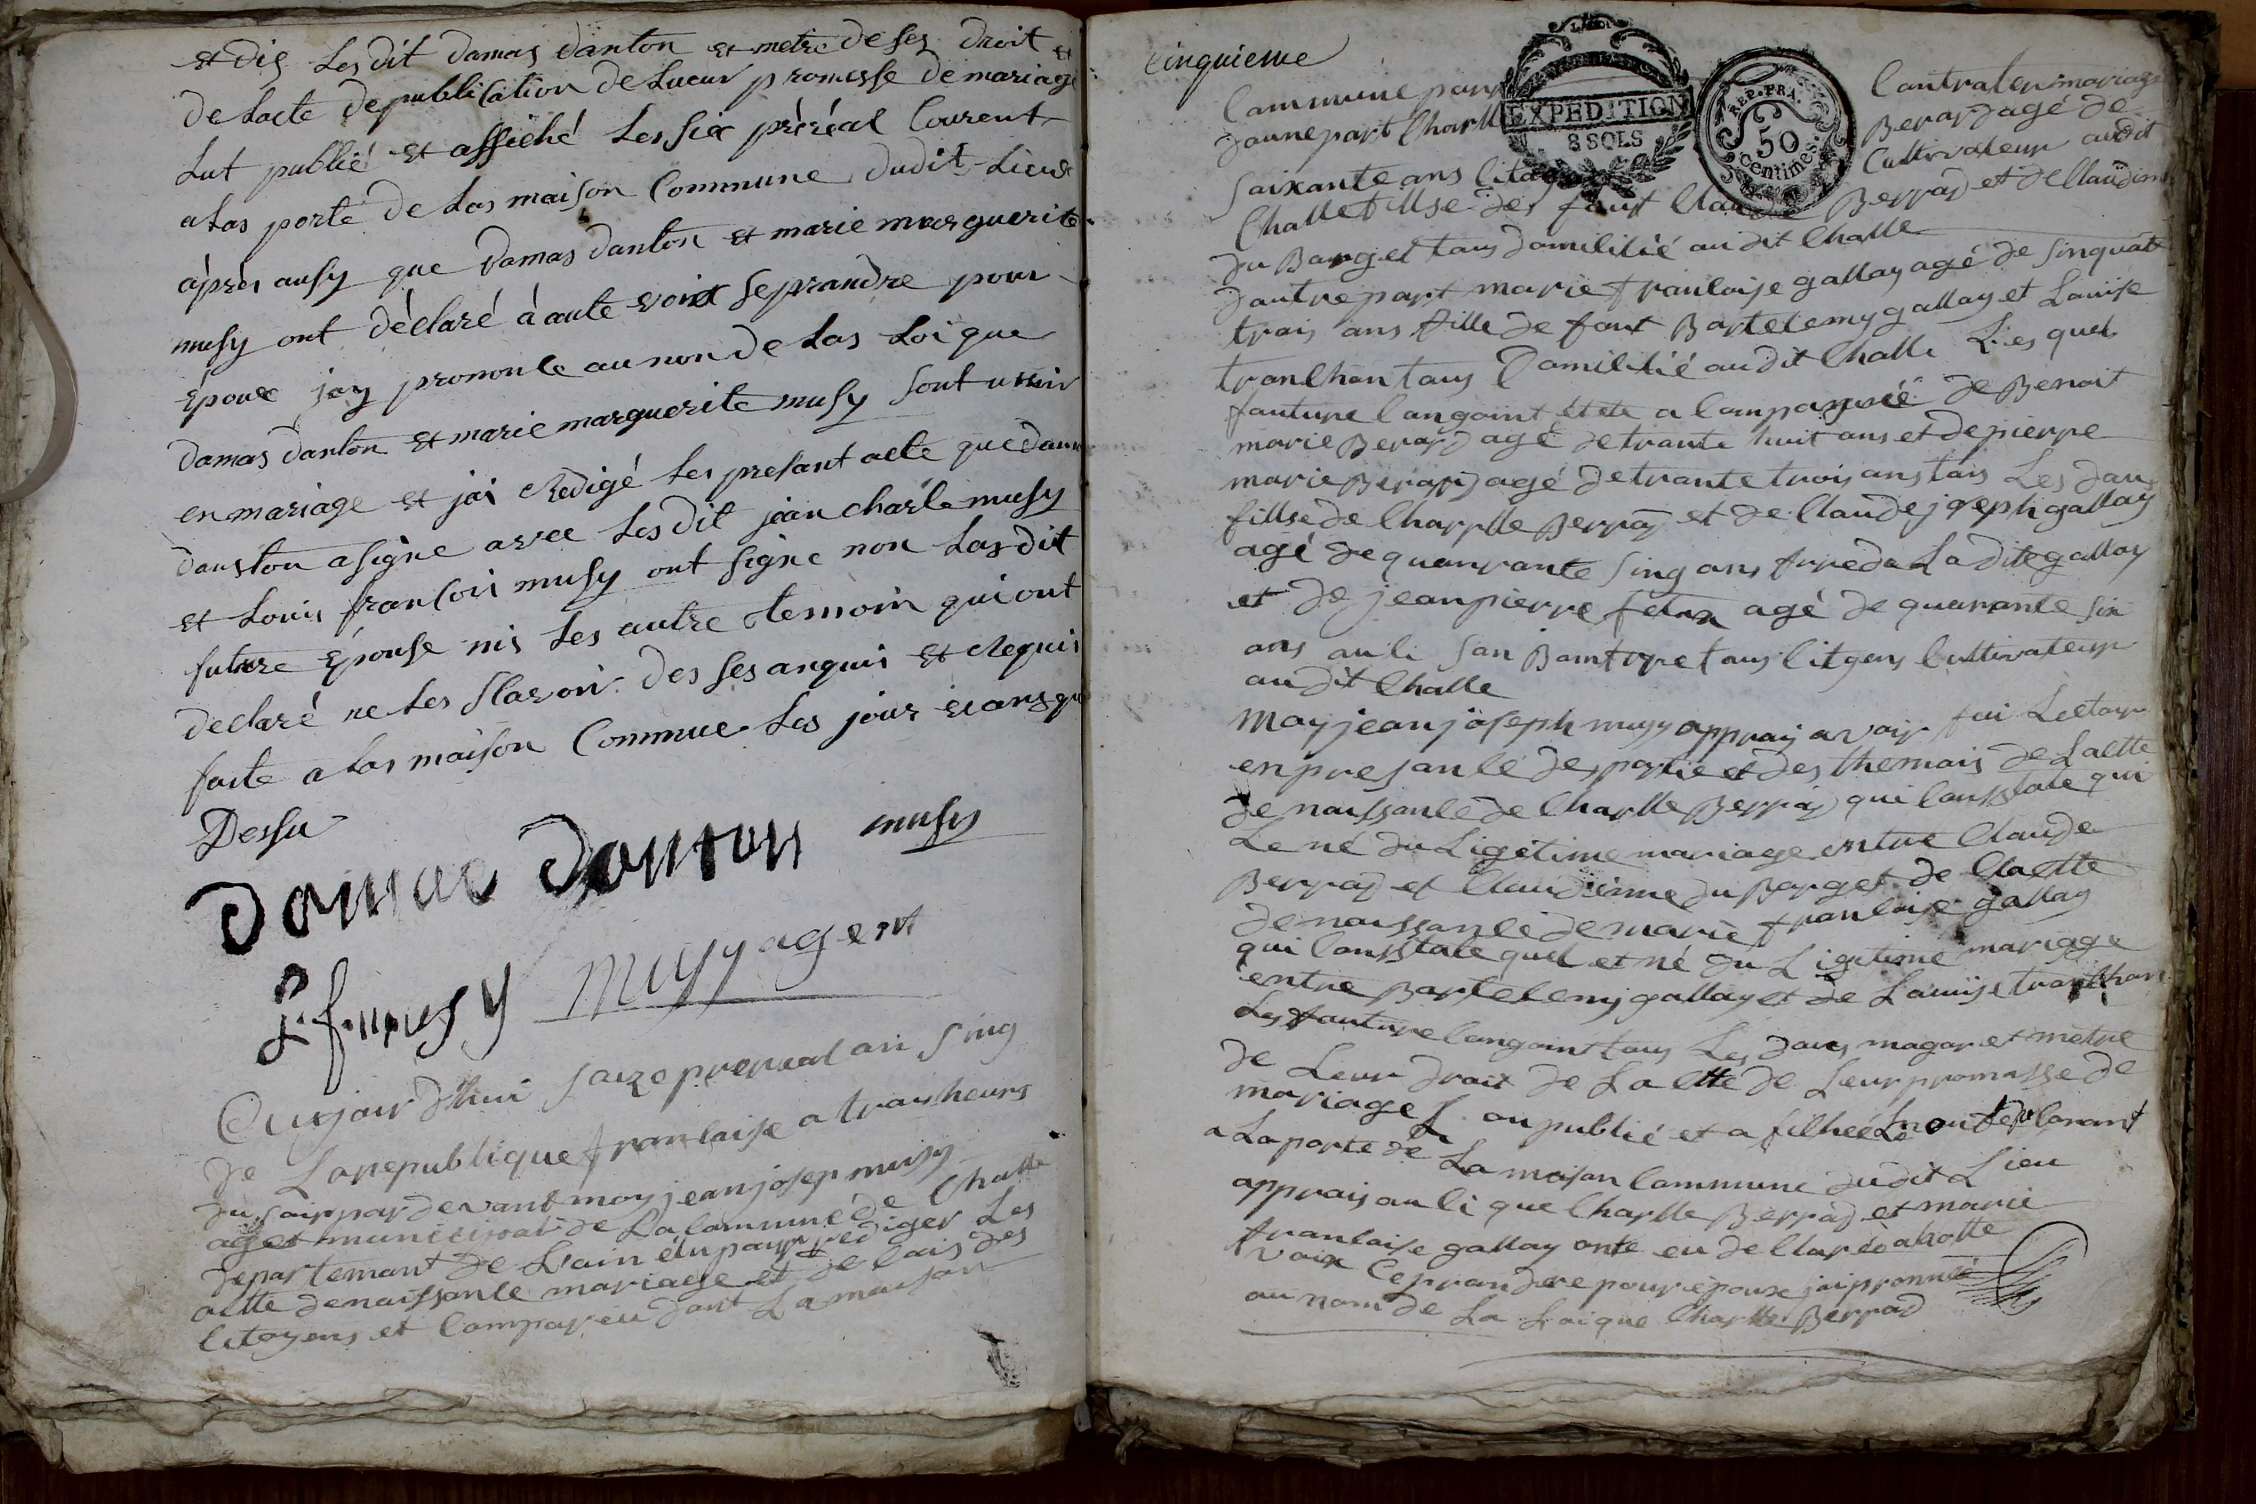 et dis les dit damas danton et metre de ses droit et
de lacte de publication de lueur promesse de mariage
lut publié et affiché les six préréal Courent
a las porte de las maison Commune dudit Lieux
après ausy que damas danton et marie marguerite
musy ont déclaré à aute voix se prandre pour
Épouse jay prononce au non de las Loi que
damas danton et marie marguerite musy sont unir
en mariage et jai redigé les presant acte que dam
danston a signe avec les dit jean charle musy
et Louis françois musy ont signe non las dit
future Épouse nis les autre temoin qui ont
declaré ne les Savoir des ses anquis et requis
faite a las maison Commue les jour et ans que
Dessu
musy
Damac Danton
L. f. musy musy agent
Aujourdhui saize prereal an sing
de la republique franlaise a trais heurs
du sair par devant moy jean josep musy
aget municipal de La Commune de Challe
departemant de Lain élu pour rediger Les
actte de naissance mariage et de lais des
Citoyens et Comparéu dant La maison
Cinquieme
Commune pour Contraler mariage
daune part Charlle Berard agé de
saixante ans Citoy Cultivateur audit
Challe fillse des faut Claude Berrad et de Claudine
du Barget taus domilitié audit Challe
dautre part marie franlaise gallay agé de sinquat
trais ans fille de faut Bartelemy gallay et Lauise
tranlhan taus Damilitié audit Challe Les quel
fauture Congoint etete a Companiée de Benait
marie Berard agé de trante huit ans et de pierre
marie Berard agé de trante trois ans tais Les daus
fillse de Charlle Berrad et de Claude joseph gallay
agé de quarante sing ans frre da La dite gallay
et de jean pierre agé de quarante six
ans auli san taus Citoyens Cultivateur
audit Challe
Moy jean jöseph musy apprais avoir fai Lectour
en presanle des partie et des themais de Lactte
de naissanle de Charlle Berrad qui Consstate qui
Le né du Ligetime mariage entre Claude
Berrad et Claudinne du Barget de Lactte
de naissanle de marie franlaise gallay
qui Consstate quel et né du Ligitime mariage
entre Bartelemy gallay et de Lauise tranlhan
Les fauture Congoint taus Les daus magar et metre
de Leur drait de La ctte de Leur promasse de
mariage L au publié et a filhée Le Courant
a La porte de La maison Commune dudit Lieu
apprais auli que Charlle Berrad et marie
franlaise gallay onte eu de Claré a hotte
vaix Ce prandere pour epouse jai pronncé
au nom de La Lai que Charlle Berrad
EXPEDITION
8 SOLS
REP. FRA.
50
Centimes.